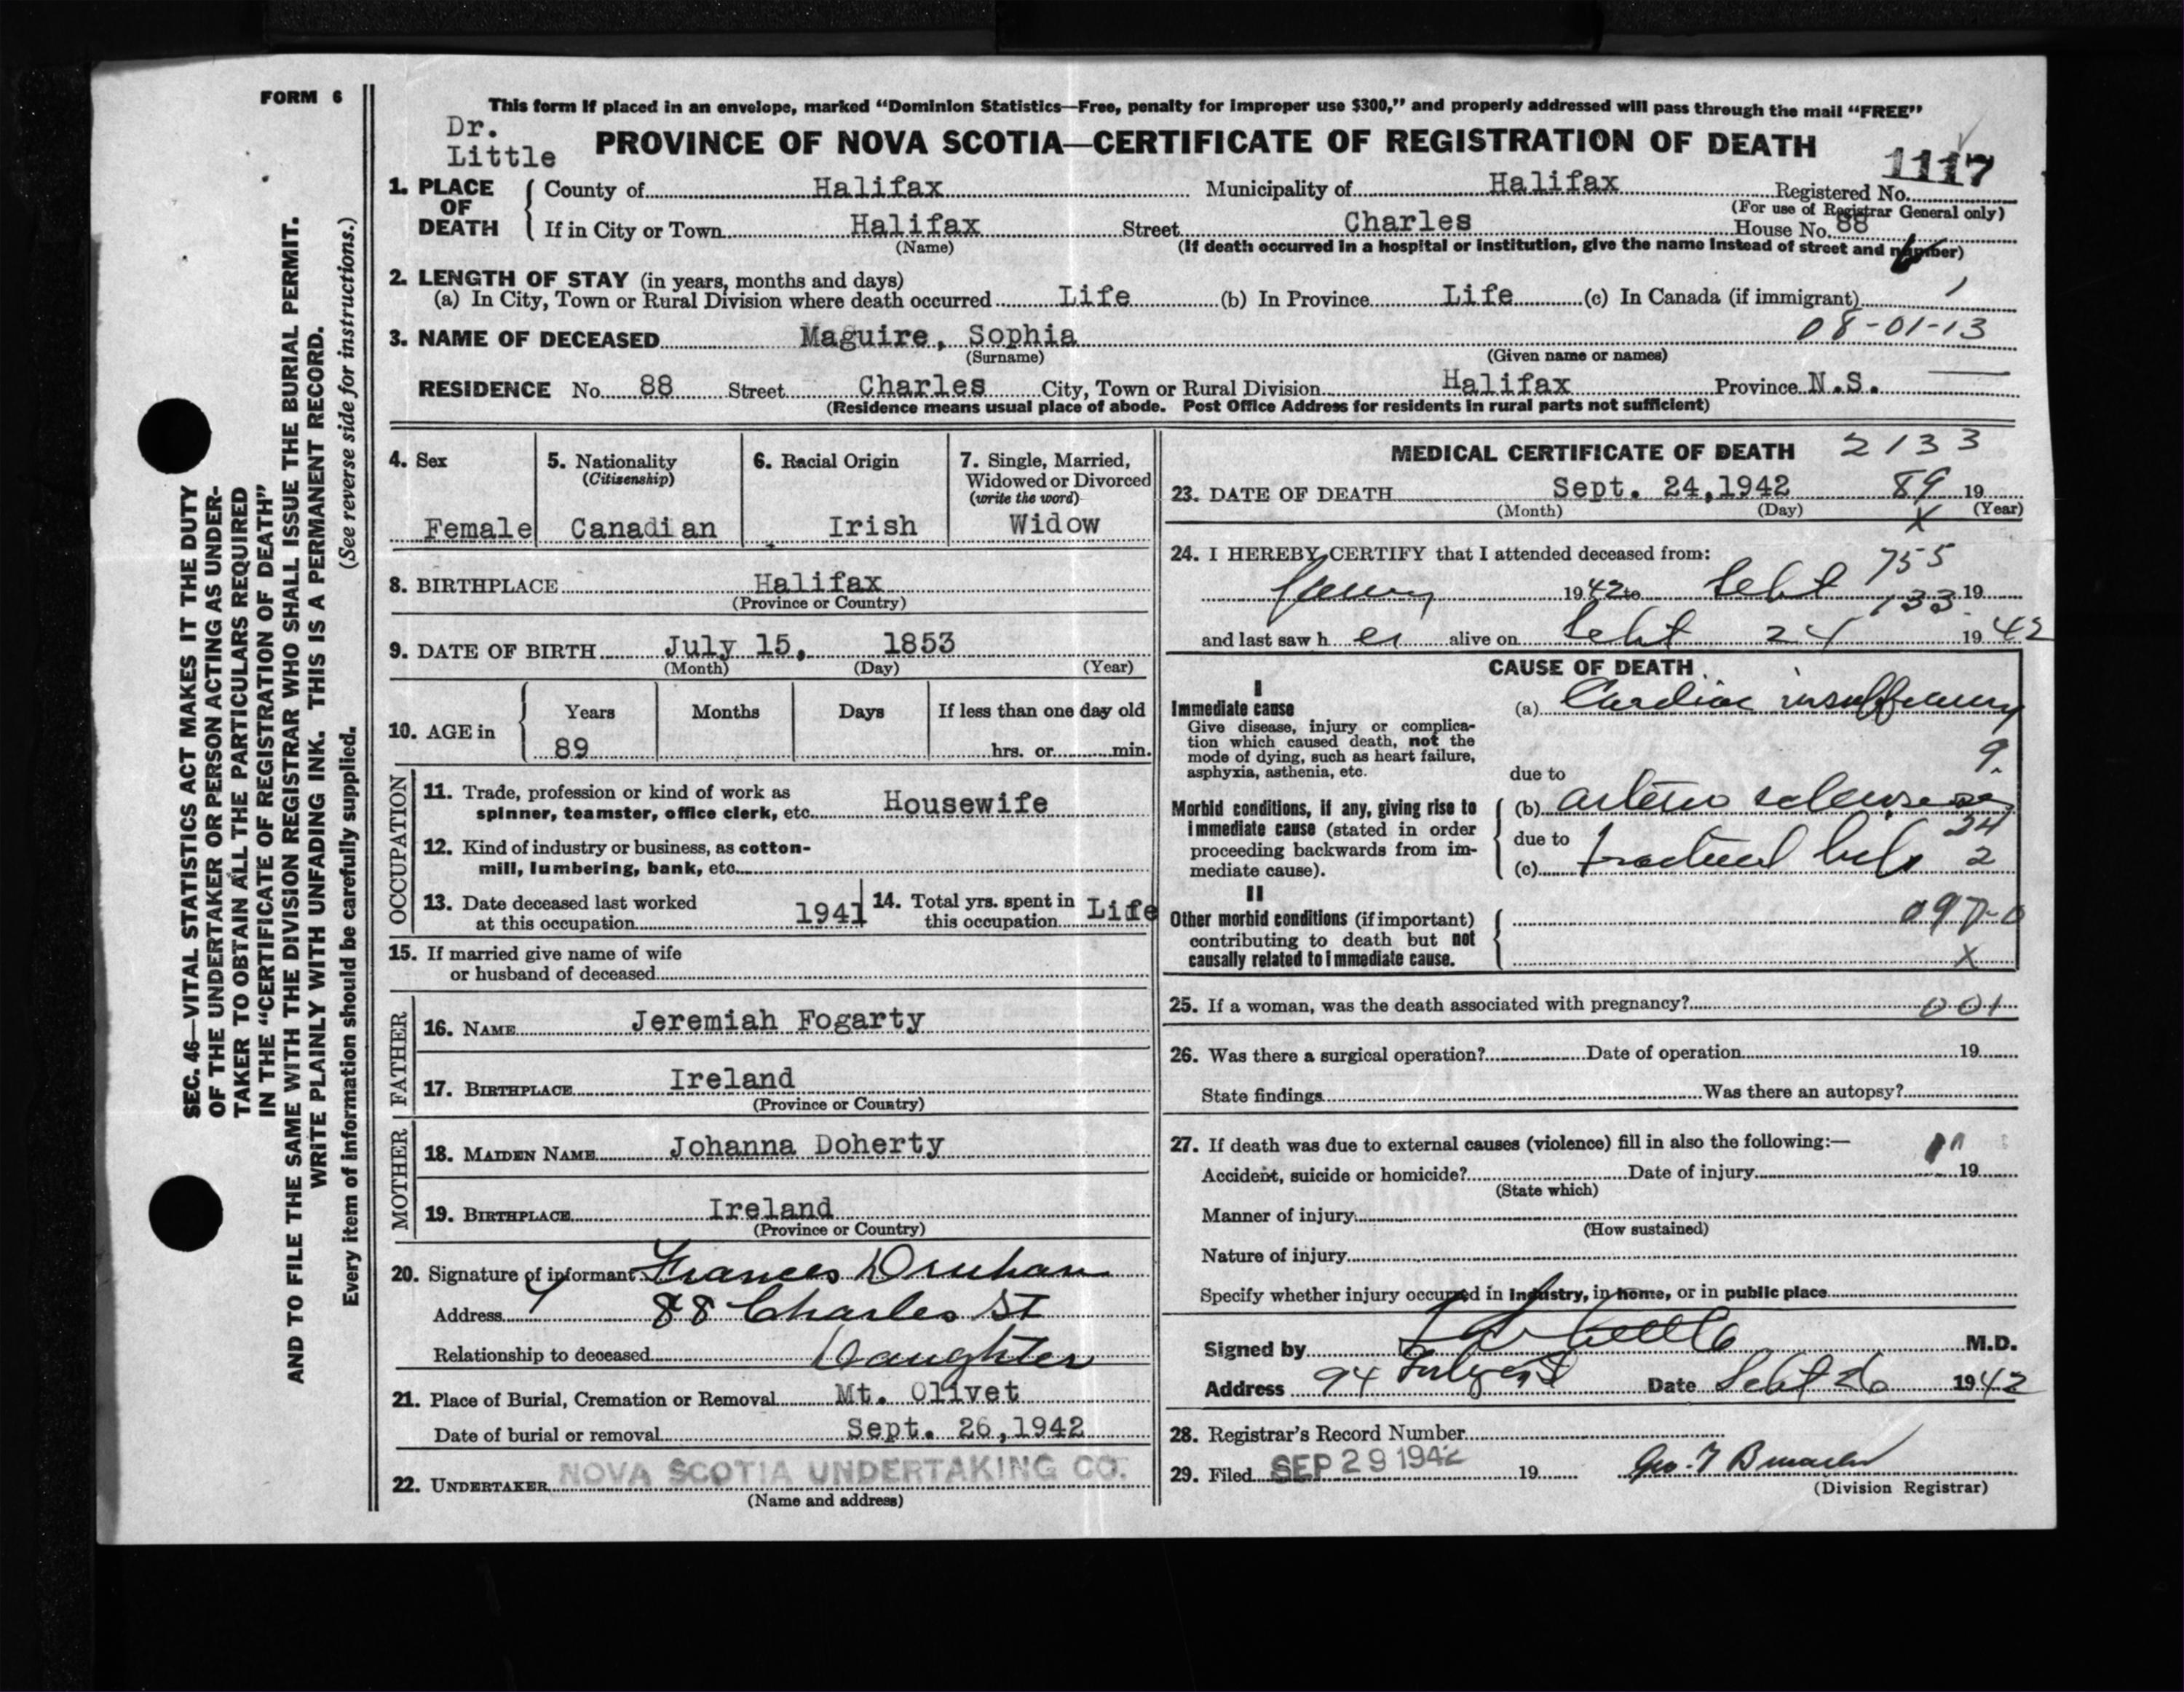 FORM 6
SEC. 46—VITAL STATISTICS ACT MAKES IT THE DUTY
OF THE UNDERTAKER OR PERSON ACTING AS UNDER-
TAKER TO OBTAIN ALL THE PARTICULARS REQUIRED
IN THE "CERTIFICATE OF REGISTRATION OF DEATH"
AND TO FILE THE SAME WITH THE DIVISION REGISTRAR WHO SHALL ISSUE THE BURIAL PERMIT.
WRITE PLAINLY WITH UNFADING INK. THIS IS A PERMANENT RECORD.
Every item of information should be carefully supplied. (See reverse side for instructions.)
This form if placed in an envelope, marked "Dominion Statistics—Free, penalty for improper use $300," and properly addressed will pass through the mail "FREE"
Dr.
Little
PROVINCE OF NOVA SCOTIA—CERTIFICATE OF REGISTRATION OF DEATH
1117
1. PLACE OF DEATH
County of Halifax Municipality of Halifax Registered No.
(For use of Registrar General only)
If in City or Town Halifax Street Charles House No. 88
(Name) (If death occurred in a hospital or institution, give the name instead of street and number)
2. LENGTH OF STAY (in years, months and days)
(a) In City, Town or Rural Division where death occurred Life (b) In Province Life (c) In Canada (if immigrant) 1
08-01-13
3. NAME OF DECEASED Maguire, Sophia
(Surname) (Given name or names)
RESIDENCE No. 88 Street Charles City, Town or Rural Division Halifax Province N.S.
(Residence means usual place of abode. Post Office Address for residents in rural parts not sufficient)
4. Sex
Female
5. Nationality
(Citizenship)
Canadian
6. Racial Origin
Irish
7. Single, Married,
Widowed or Divorced
(write the word)
Widow
8. BIRTHPLACE Halifax
(Province or Country)
9. DATE OF BIRTH July 15, 1853
(Month) (Day) (Year)
10. AGE in
Years Months Days If less than one day old
89 hrs. or min.
OCCUPATION
11. Trade, profession or kind of work as
spinner, teamster, office clerk, etc. Housewife
12. Kind of industry or business, as cotton-
mill, lumbering, bank, etc.
13. Date deceased last worked
at this occupation 1941
14. Total yrs. spent in
this occupation Life
15. If married give name of wife
or husband of deceased
FATHER
16. NAME Jeremiah Fogarty
17. BIRTHPLACE Ireland
(Province or Country)
MOTHER
18. MAIDEN NAME Johanna Doherty
19. BIRTHPLACE Ireland
(Province or Country)
20. Signature of informant Frances Druhan
Address 88 Charles St
Relationship to deceased Daughter
21. Place of Burial, Cremation or Removal Mt. Olivet
Date of burial or removal Sept. 26, 1942
22. UNDERTAKER NOVA SCOTIA UNDERTAKING CO.
(Name and address)
MEDICAL CERTIFICATE OF DEATH 2133
23. DATE OF DEATH Sept. 24, 1942 89 19
(Month) (Day) X (Year)
24. I HEREBY CERTIFY that I attended deceased from: 755
1942 to Sept 133 19
and last saw her alive on Sept 24 1942
CAUSE OF DEATH
I
Immediate cause
Give disease, injury or complica-
tion which caused death, not the
mode of dying, such as heart failure,
asphyxia, asthenia, etc.
(a) Cardiac insufficiency
9.
due to
Morbid conditions, if any, giving rise to
immediate cause (stated in order
proceeding backwards from im-
mediate cause).
(b) arterio sclerosis
due to 24
(c) fractured hip 2
II
Other morbid conditions (if important)
contributing to death but not
causally related to immediate cause.
097-0
X
25. If a woman, was the death associated with pregnancy? 001
26. Was there a surgical operation? Date of operation 19
State findings Was there an autopsy?
27. If death was due to external causes (violence) fill in also the following:—
Accident, suicide or homicide? Date of injury 19
(State which)
Manner of injury
(How sustained)
Nature of injury
Specify whether injury occurred in Industry, in home, or in public place
Signed by M.D.
Address 94 Date Sept 26 1942
28. Registrar's Record Number
29. Filed SEP 29 1942 19
(Division Registrar)